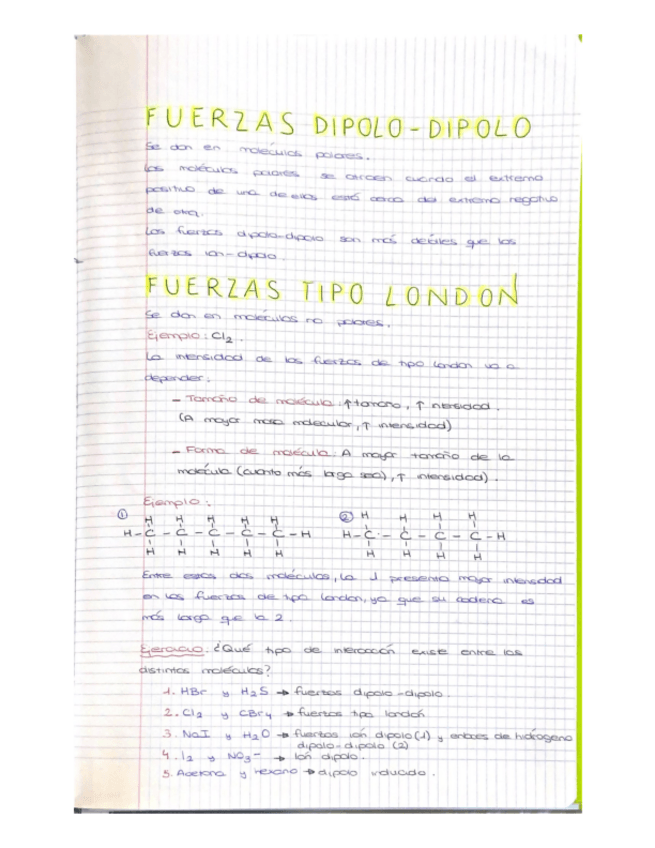 FUERZAS DIPOLO-DIPOLO
Se dan en moléculas polares.
Las moléculas polares se atraen cuando el extremo
positivo de una de ellas está cerca del extremo negativo
de otra.
Las fuerzas dipolo-dipolo son más débiles que las
fuerzas ion-dipolo.
FUERZAS TIPO LONDON
Se dan en moléculas no polares.
Ejemplo: Cl2.
La intensidad de las fuerzas de tipo london va a
depender:
- Tamaño de molécula: ↑tamaño, ↑ intensidad.
(A mayor masa molecular, ↑ intensidad)
- Forma de molécula: A mayor tamaño de la
molécula (cuanto más larga sea), ↑ intensidad).
Ejemplo:
① H H H H H ② H H H H
H-C-C-C-C-C-H H-C-C-C-C-H
H H H H H H H H H
Entre estas dos moléculas, la 1 presenta mayor intensidad
en las fuerzas de tipo london, ya que su cadena es
más larga que la 2.
Ejercicio: ¿Qué tipo de interacción existe entre las
distintas moléculas?
1. HBr y H2S → fuerzas dipolo-dipolo.
2. Cl2 y CBr4 → fuerzas tipo london
3. NaI y H2O → fuerzas ión dipolo (1) y enlaces de hidrógeno
dipolo-dipolo (2)
4. I2 y NO3- → Ión dipolo.
5. Acetona y hexano → dipolo inducido.